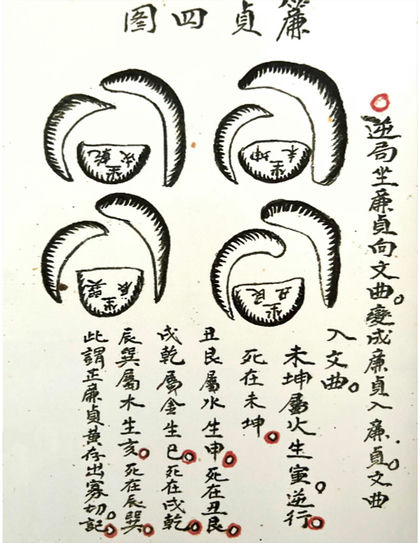 廉貞四圖
未坐坤
戌坐乾
丑坐艮
辰坐巽
逆局坐廉貞向文曲。變成廉貞入廉貞。文曲
入文曲。
未坤屬火生寅。逆行。
死在未坤。
丑艮屬水生申。死在丑艮。
戌乾屬金生巳。死在戌乾。
辰巽屬水生亥。死在辰巽。
此謂正廉貞黃存出寡。切記。